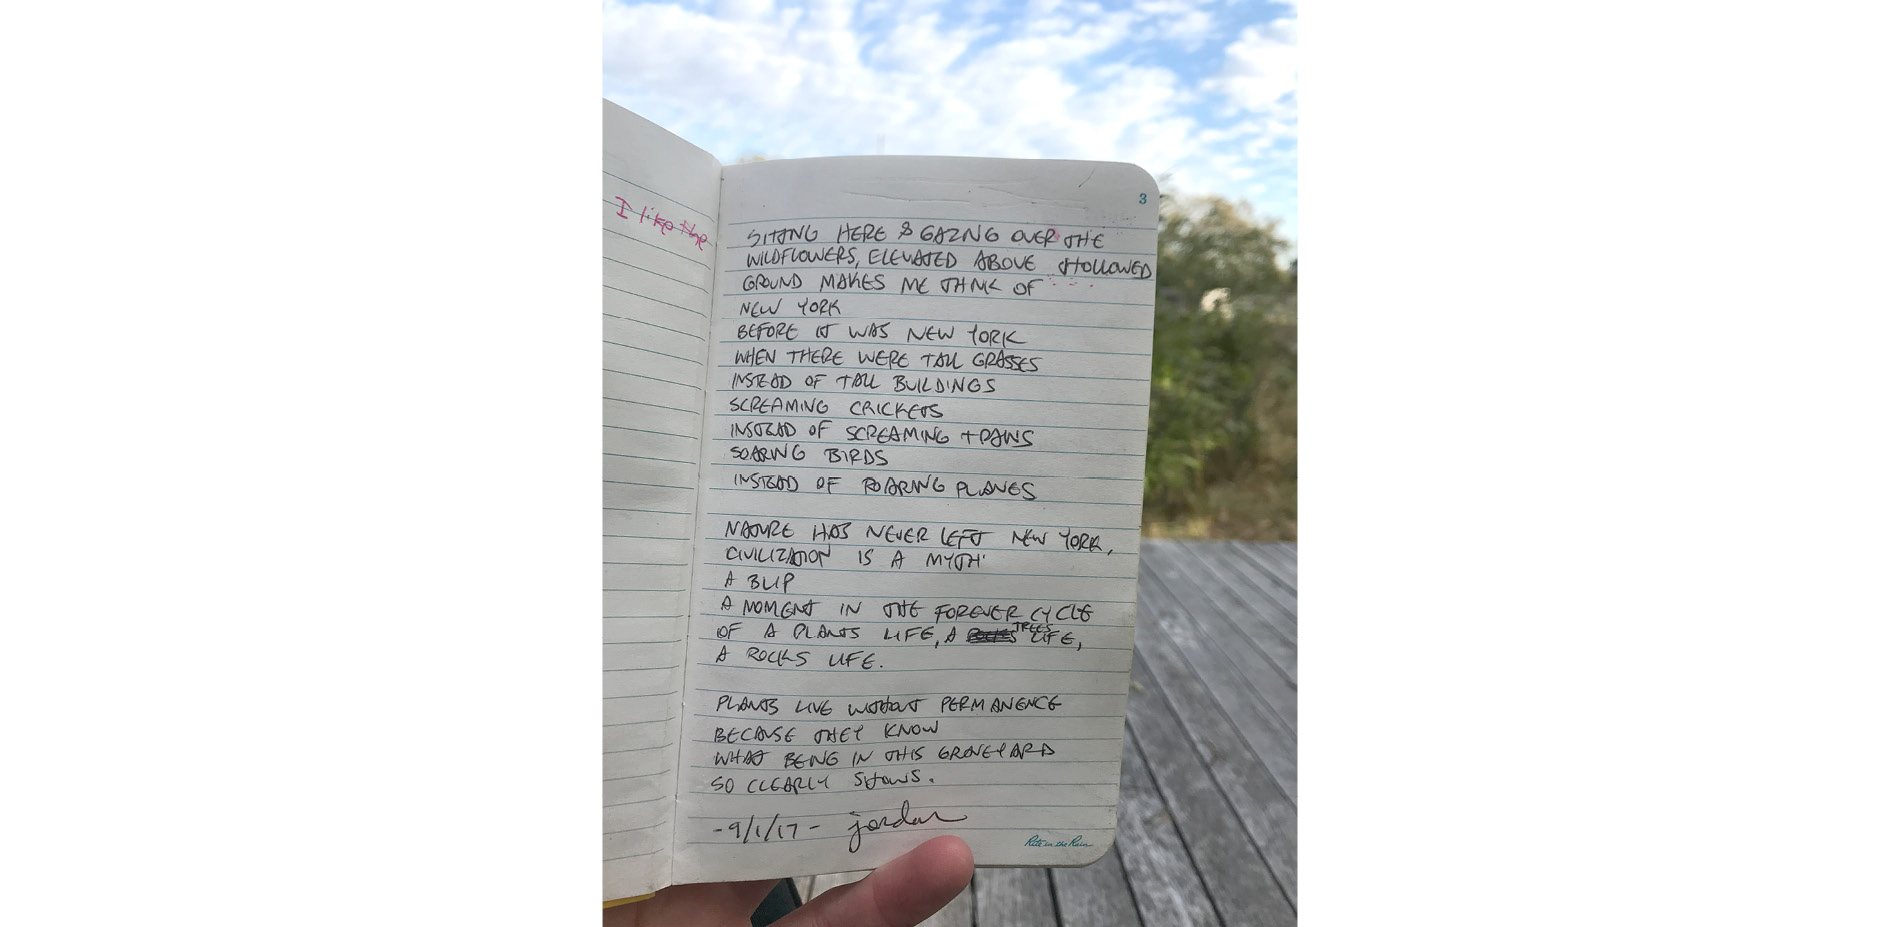 I like the
3
SITTING HERE & GAZING OVER THE
WILDFLOWERS, ELEVATED ABOVE HOLLOWED
GROUND MAKES ME THINK OF
NEW YORK
BEFORE IT WAS NEW YORK
WHEN THERE WERE TALL GRASSES
INSTEAD OF TALL BUILDINGS
SCREAMING CRICKETS
INSTEAD OF SCREAMING TRAINS
SOARING BIRDS
INSTEAD OF ROARING PLANES
NATURE HAS NEVER LEFT NEW YORK,
CIVILIZATION IS A MYTH
A BLIP
A MOMENT IN THE FOREVER CYCLE
OF A PLANTS LIFE, A TREES LIFE,
A ROCKS LIFE.
PLANTS LIVE WITHOUT PERMANENCE
BECAUSE THEY KNOW
WHAT BEING IN THIS GRAVEYARD
SO CLEARLY SHOWS.
-9/1/17- jordan
Rite in the Rain